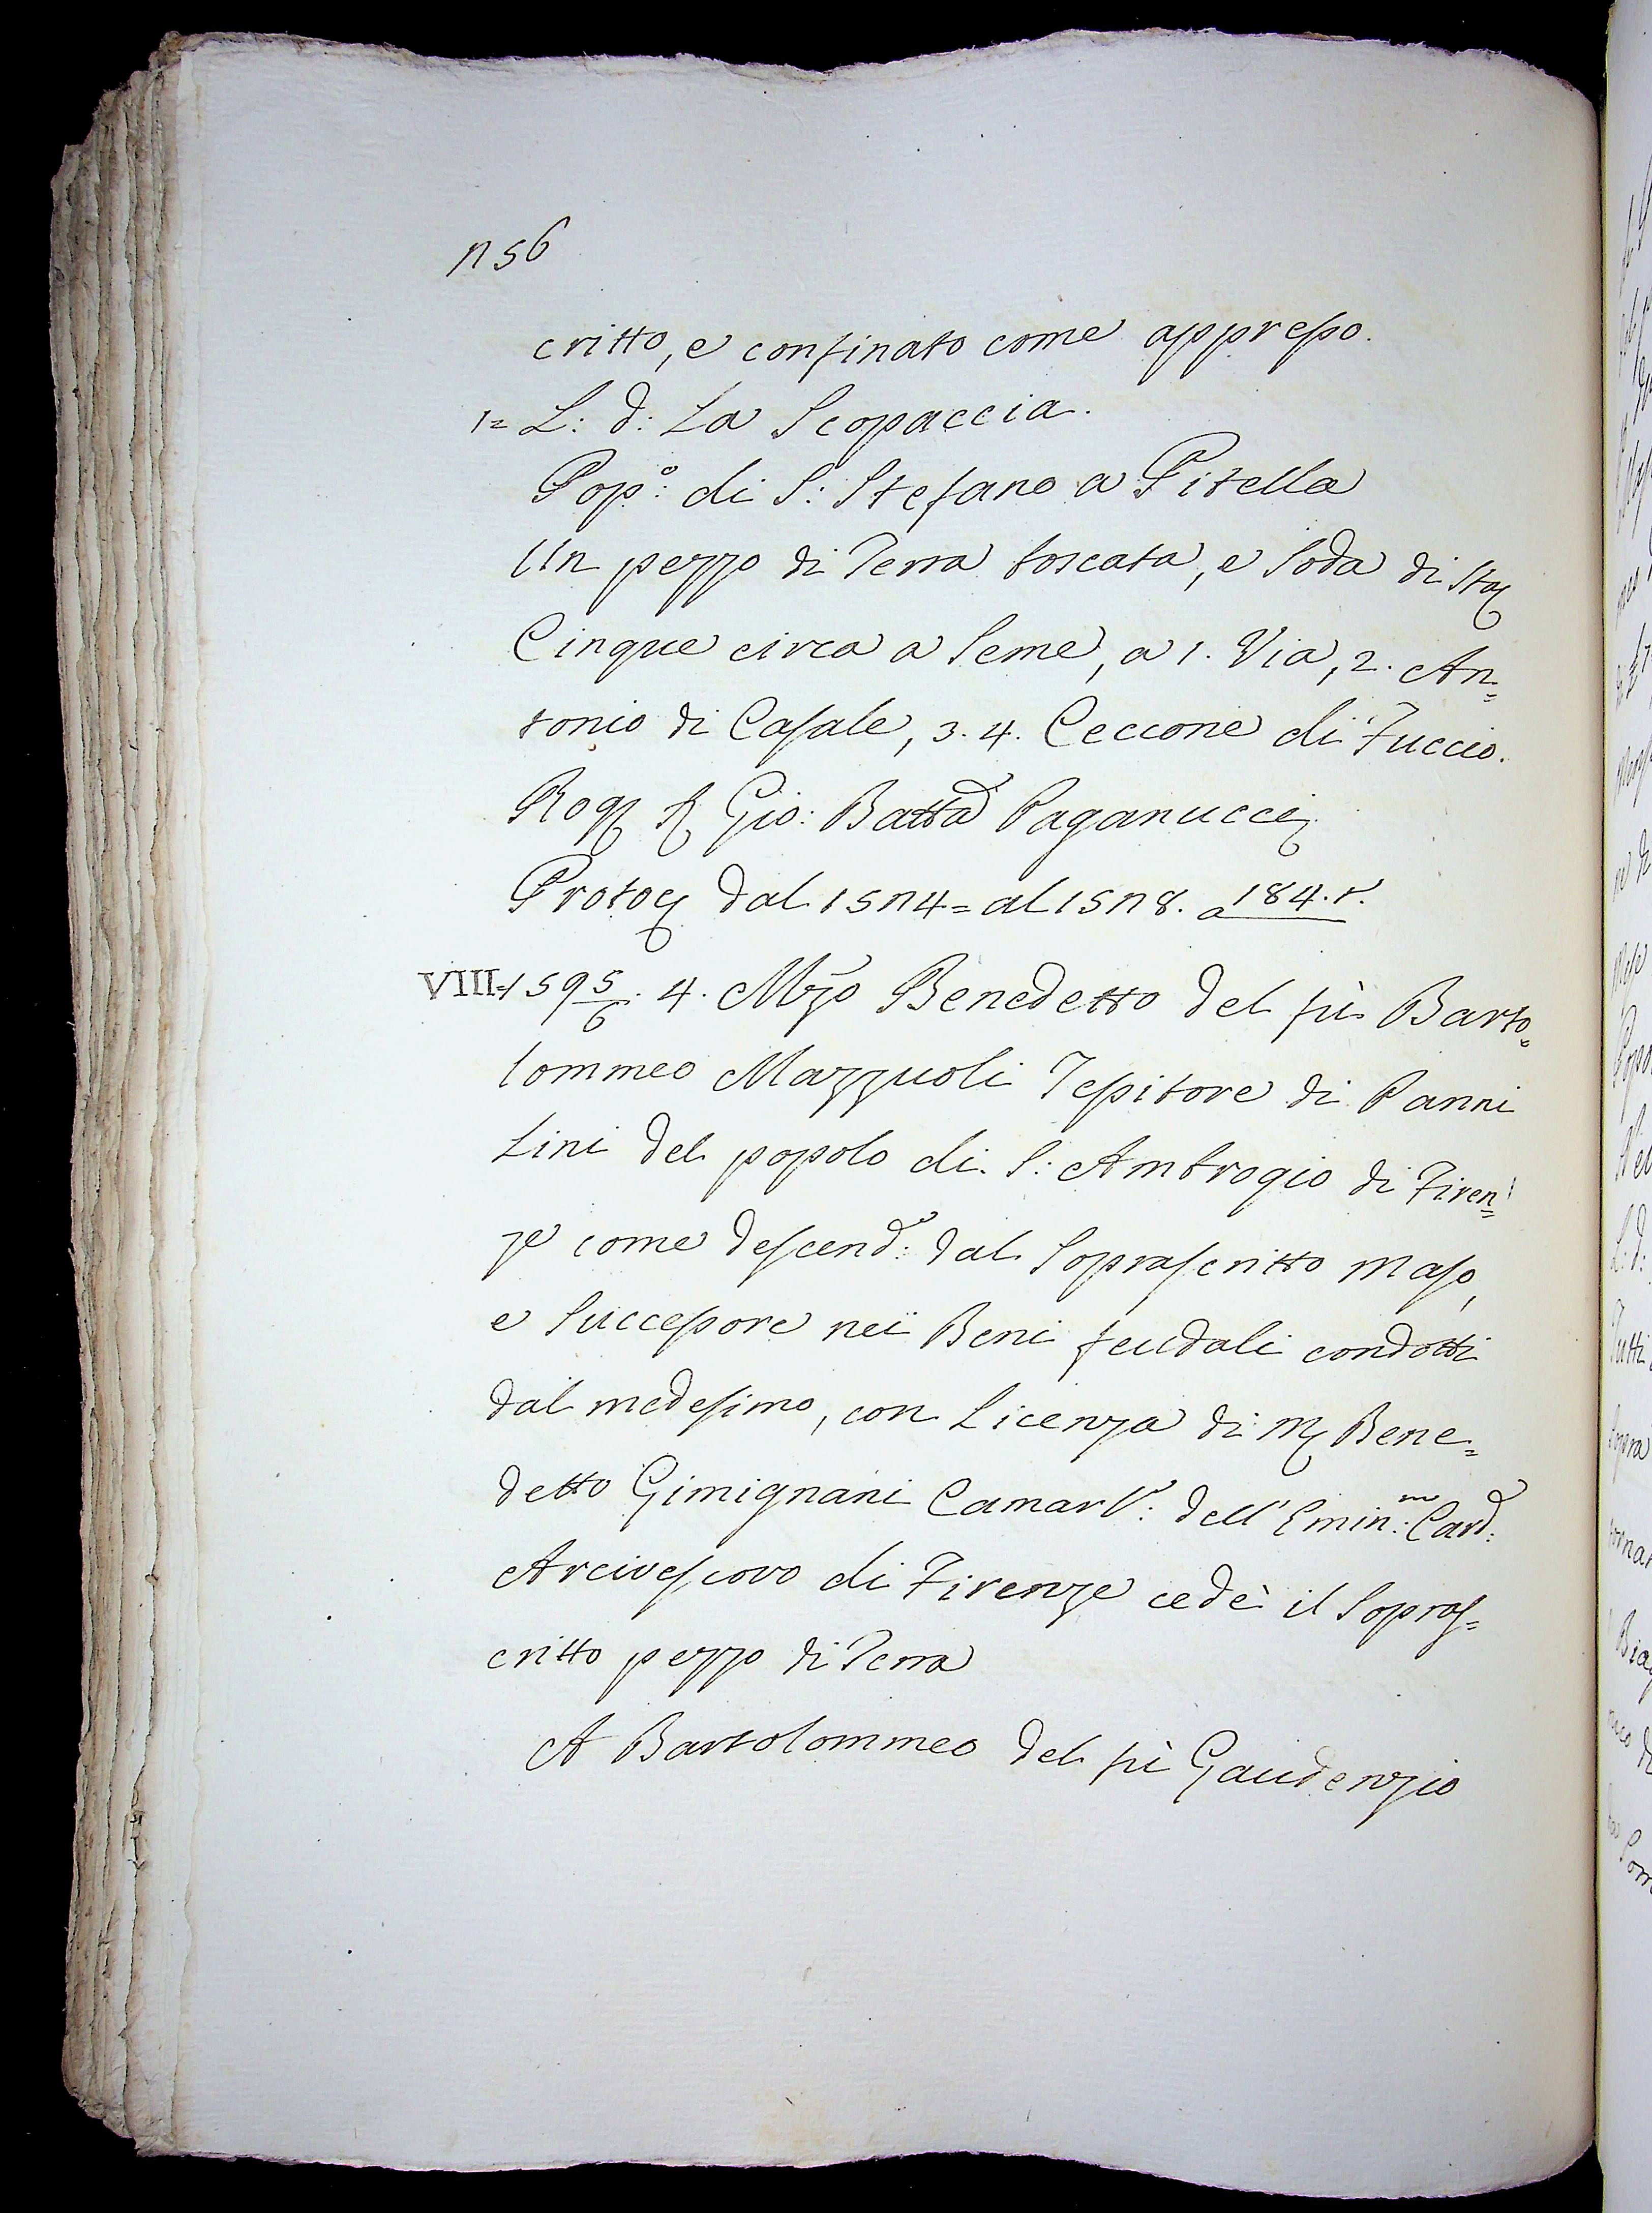 756
critto, e confinato come appresso.
1= L: d: La Scopaccia.
Pop:º di S: Stefano a Pitella
Un pezzo di Terra boscata, e soda di sta
Cinque circa a seme, a 1. Via, 2. An=
tonio di Casale, 3. 4. Ceccone di Fuccio.
Rog Gio: Batta Paganucci
Protoc dal 1574= al 1578. a 184. t.
VIII=1595/6. 4. Mzo Benedetto del fù Barto=
lommeo Mazzuoli Tessitore di Panni
Lini del popolo di S: Ambrogio di Firen=
ze come descend:e dal Soprascritto Maso,
e Successore nei Beni feudali condotti
dal medesimo, con Licenza di M Bene=
detto Gimignani Camarl: dell' Emin:mo Card:
Arcivescovo di Firenze cedè il sopras=
critto pezzo di Terra
A Bartolommeo del fù Gaudenzio